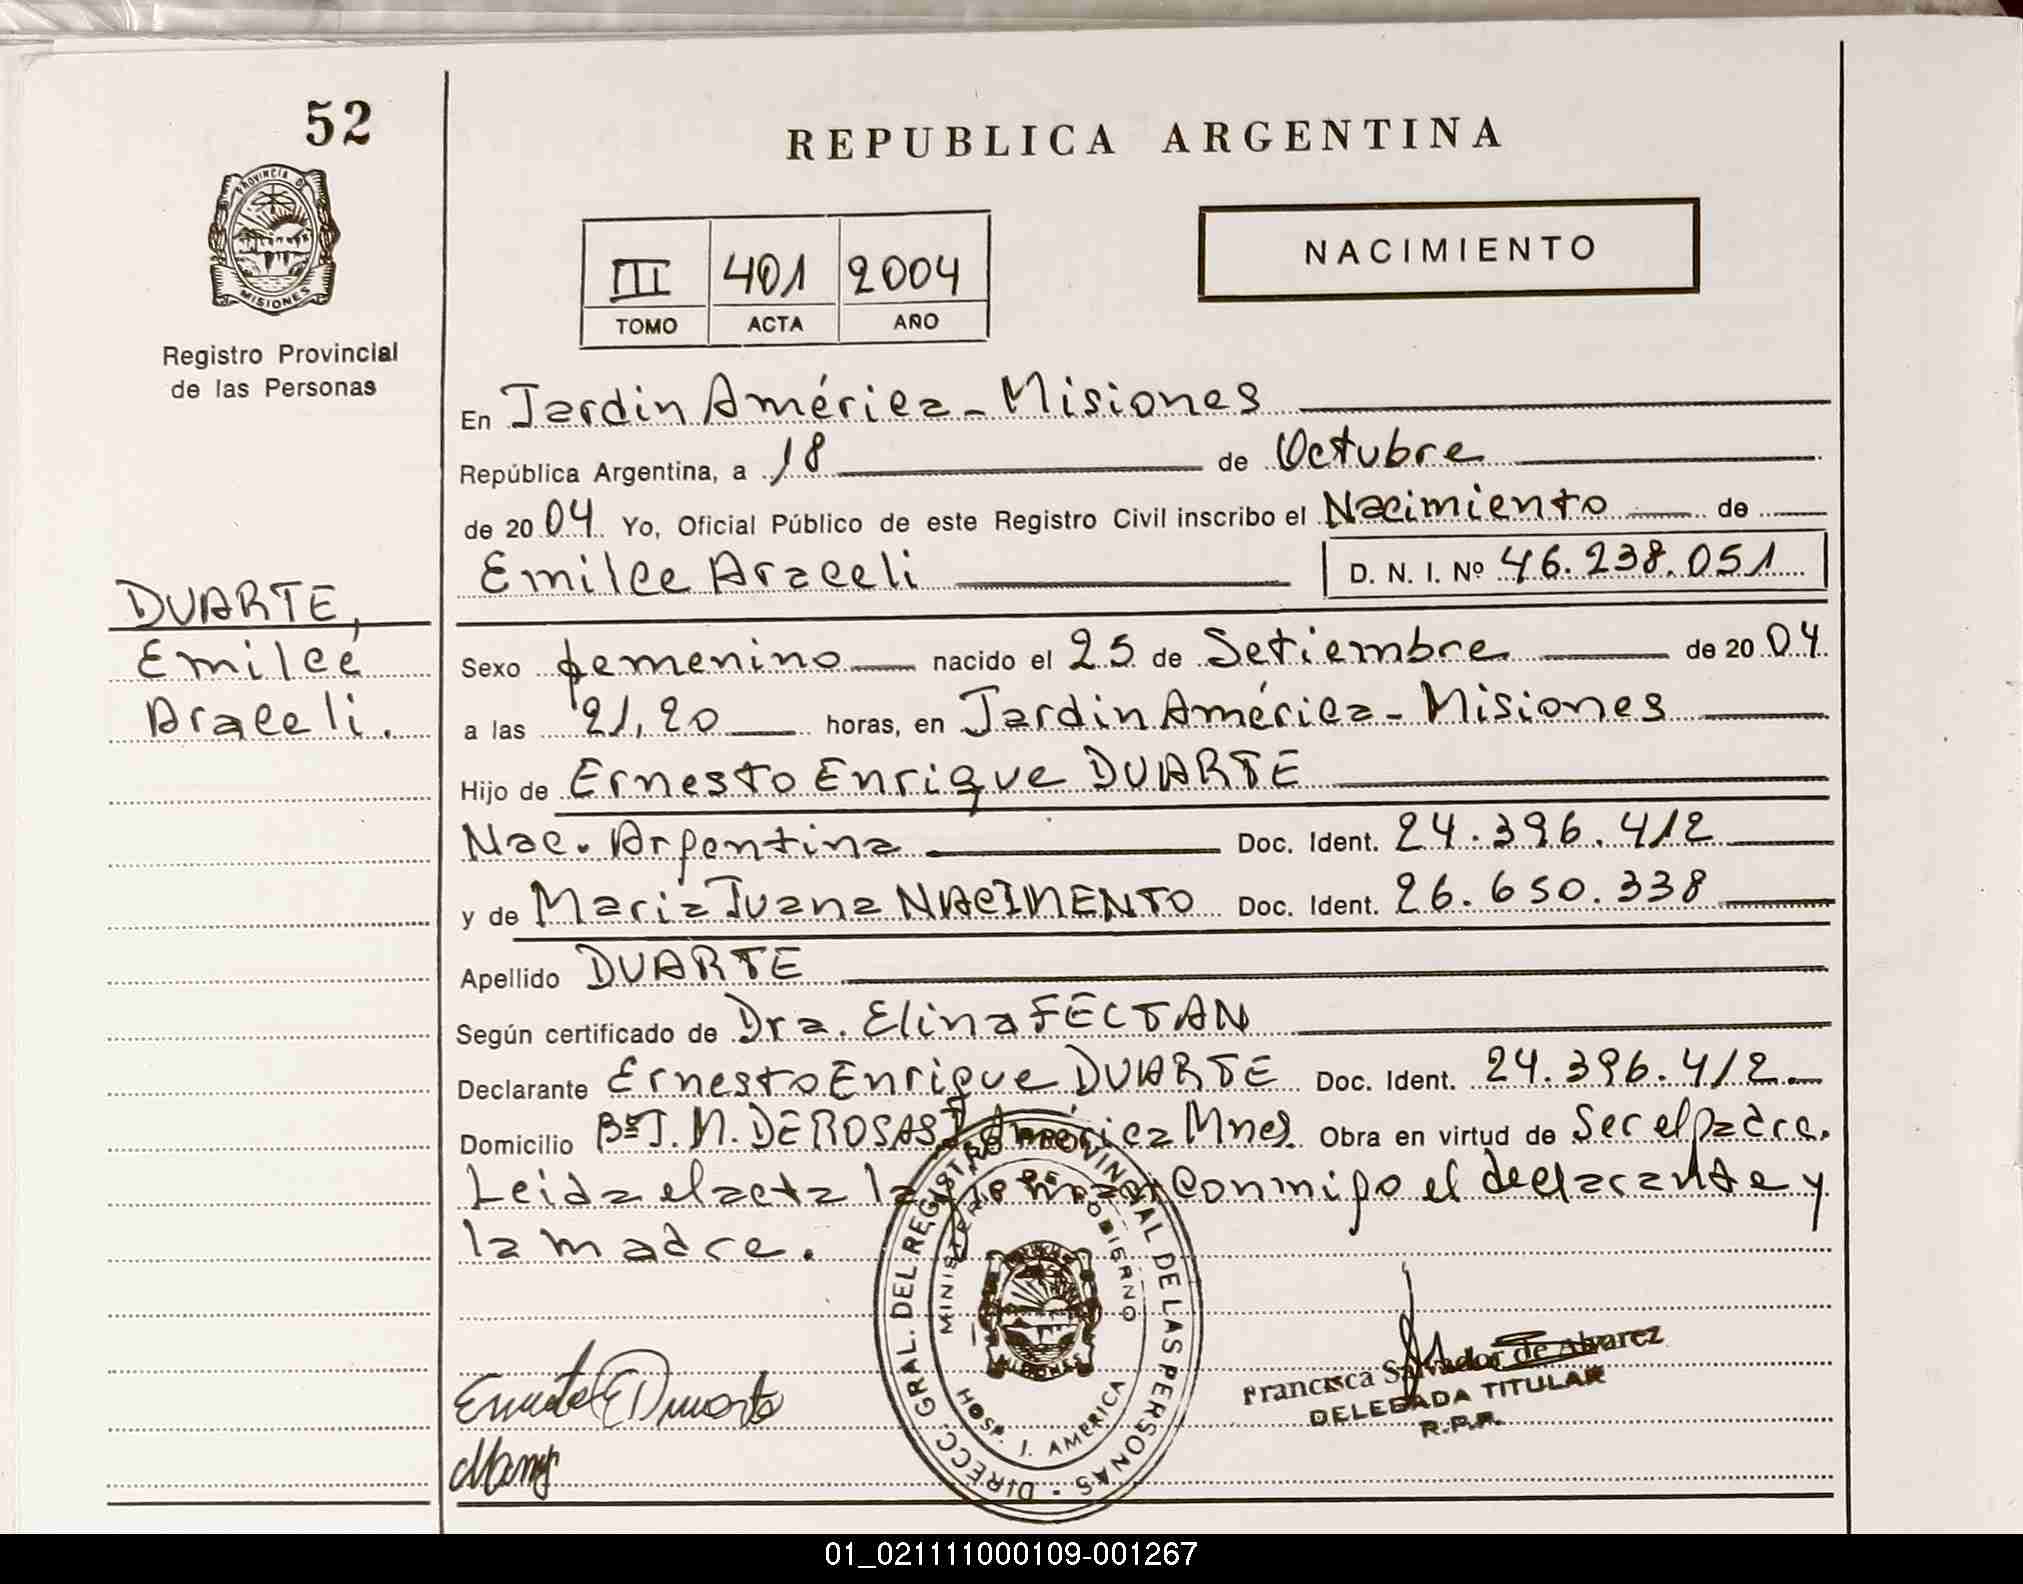 52
REPUBLICA ARGENTINA
PROVINCIA DE
MISIONES
Registro Provincial
de las Personas
III 401 2004
TOMO ACTA AÑO
NACIMIENTO
En Jardin América - Misiones
República Argentina, a 18 de Octubre
de 2004 Yo, Oficial Público de este Registro Civil inscribo el Nacimiento de
Emilce Araceli D. N. I. Nº 46.238.051
DUARTE,
Emilce
Araceli.
Sexo femenino nacido el 25 de Setiembre de 2004
a las 21,20 horas, en Jardin América - Misiones
Hijo de Ernesto Enrique DUARTE
Nac. Argentina Doc. Ident. 24.396.412
y de Maria Juana NACIMENTO Doc. Ident. 26.650.338
Apellido DUARTE
Según certificado de Dra. Elina FECTAN
Declarante Ernesto Enrique DUARTE Doc. Ident. 24.396.412
Domicilio Bº J. M. DE ROSAS J. América Mnes. Obra en virtud de Ser el padre.
Leida el acta la firman conmigo el declarante y
la madre.
DIRECC. GRAL. DEL REGISTRO PROVINCIAL DE LAS PERSONAS
MINISTERIO DE GOBIERNO
HOSP. J. AMERICA
Ernesto E Duarte
Francisca Salvador de Alvarez
DELEGADA TITULAR
R.P.P.
01_021111000109-001267